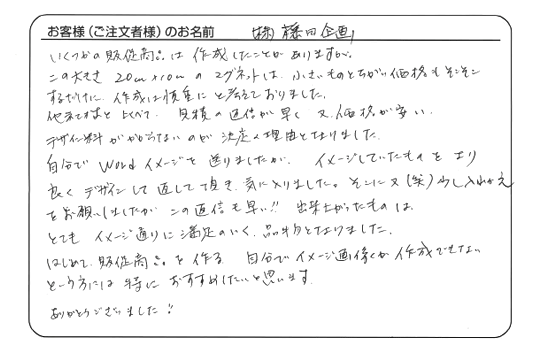 お客様(ご注文者様)のお名前 (株)藤田企画
いくつかの販促商品は作成したことがありますが、
この大きさ 20cm×10cm のマグネットは、小さいものとちがい価格もそこそこ
するだけに、作成は慎重にと考えておりました。
他社さまと比べて、見積の返信が早く 又、価格が安い、
デザイン料がかからないのが決定の理由となりました。
自分でWordイメージを送りましたが、イメージしていたものをより
良くデザインして直して頂き、気に入りました。そこに又(笑)少し入れかえ
をお願いしましたが この返信も早い!! 出来上がったものは、
とてもイメージ通りに満足のいく、品物となりました。
はじめて、販促商品を作る 自分でイメージ画像とか作成できない
という方には特におすすめしたいと思います。
ありがとうございました!